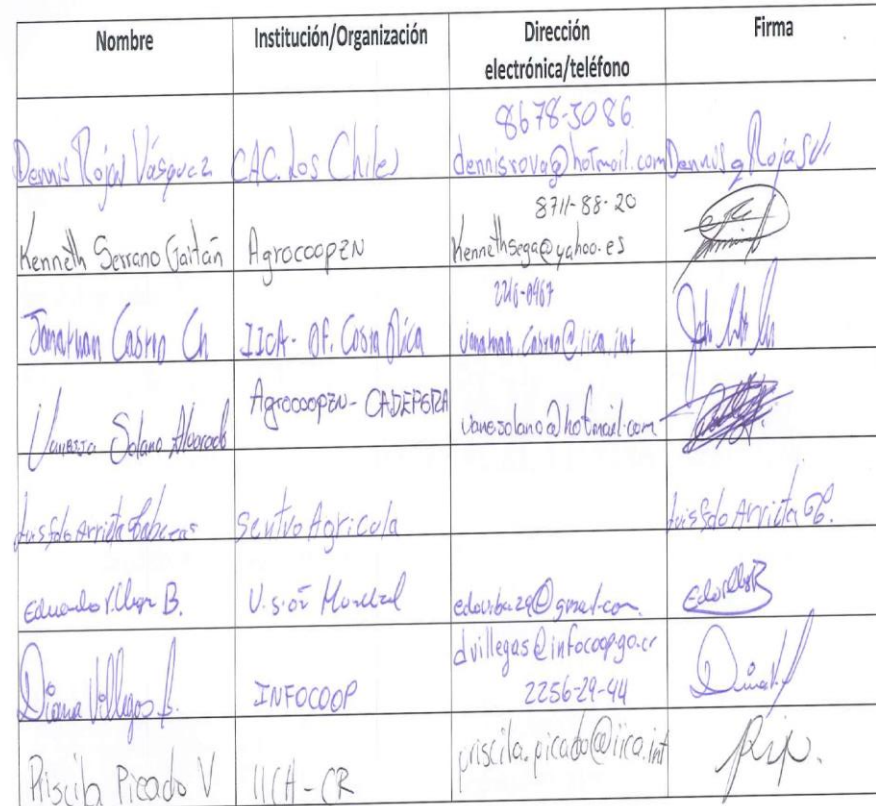 Nombre
Institución/Organización
Dirección
electrónica/teléfono
Firma
Dennis Rojas Vásquez
CAC. Los Chiles
8678-5086
dennisrova@hotmail.com
Dennis Rojas V.
Kenneth Serrano Gaitán
AgrocoopZN
8711-88-20
Kennethsega@yahoo.es
Jonathan Castro Ch
IICA - Of. Costa Rica
jonathan.castro@iica.int
Vanessa Solano Alvarado
AgrocoopZN - CADEPERA
vanesolano@hotmail.com
Luis Fdo Arrieta
Sentro Agricola
Luis Fdo Arrieta
Eduardo B.
Visión Mundial
Diana Villegas
INFOCOOP
dvillegas@infocoop.go.cr
2256-29-44
Priscila Picado V
IICA - CR
priscila.picado@iica.int